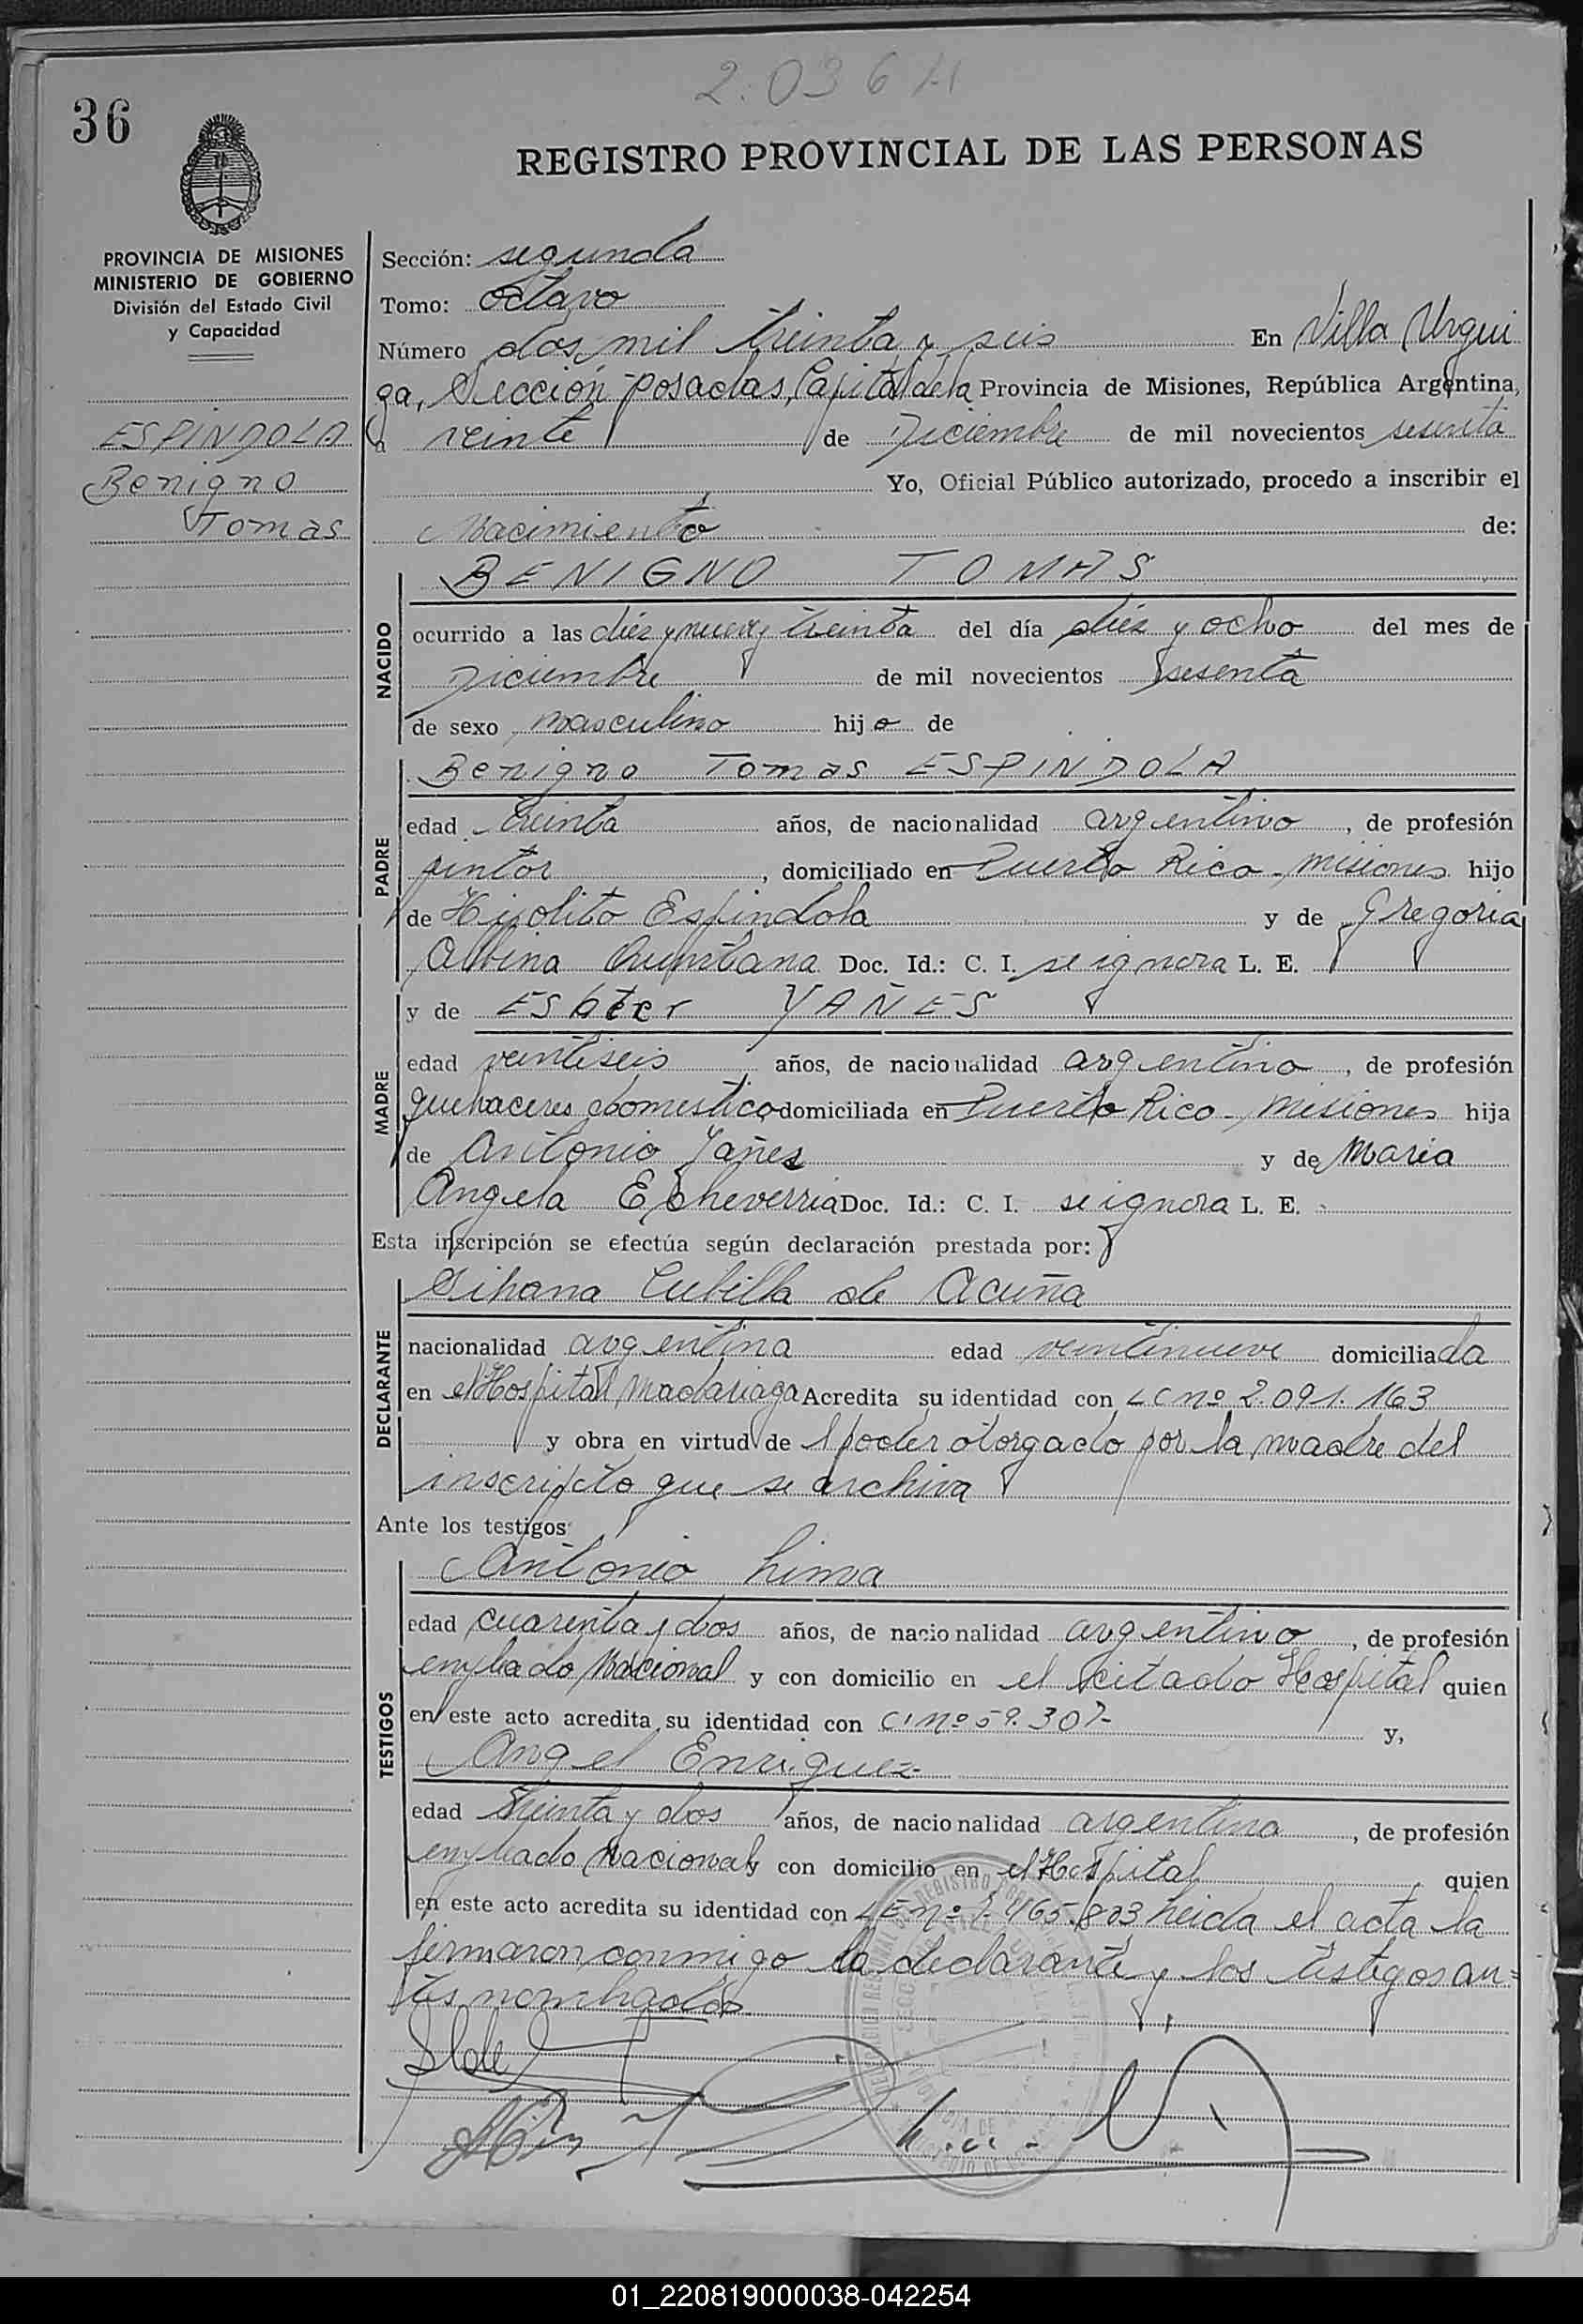 2.036 H
36
REGISTRO PROVINCIAL DE LAS PERSONAS
PROVINCIA DE MISIONES
MINISTERIO DE GOBIERNO
División del Estado Civil
y Capacidad
ESPINDOLA
Benigno
Tomas
Sección: segunda
Tomo: Octavo
Número dos mil treinta y seis En Villa Urqui
ga, Sección Posadas, Capital de la Provincia de Misiones, República Argentina,
a veinte de Diciembre de mil novecientos sesenta
Yo, Oficial Público autorizado, procedo a inscribir el
Nacimiento de:
NACIDO
BENIGNO TOMAS
ocurrido a las diez y nueve y treinta del día diez y ocho del mes de
Diciembre de mil novecientos sesenta
de sexo masculino hijo de
PADRE
Benigno Tomas ESPINDOLA
edad treinta años, de nacionalidad argentino, de profesión
pintor, domiciliado en Puerto Rico - Misiones hijo
de Hipolito Espindola y de Gregoria
Albina Quintana Doc. Id.: C. I. se ignora L. E.
MADRE
y de Esbter YAÑES
edad veintiseis años, de nacionalidad argentina, de profesión
quehaceres domestico domiciliada en Puerto Rico - Misiones hija
de Antonio Yañes y de Maria
Angela Echeverria Doc. Id.: C. I. se ignora L. E.
Esta inscripción se efectúa según declaración prestada por:
DECLARANTE
Cubilla de Acuña
nacionalidad argentina edad veintinueve domiciliada
en el Hospital Madariaga Acredita su identidad con LC nº 2.091.163
y obra en virtud de l poder otorgado por la madre del
inscripto que se archiva
Ante los testigos:
TESTIGOS
Antonio Lima
edad cuarenta y dos años, de nacionalidad argentino, de profesión
empleado Nacional y con domicilio en el citado Hospital quien
en este acto acredita su identidad con CI nº 59.307- y,
Angel Enriquez
edad treinta y dos años, de nacionalidad argentino, de profesión
empleado Nacional y con domicilio en el Hospital quien
en este acto acredita su identidad con LE nº 7.465.803 Leida el acta la
firmaron conmigo la declarante y los testigos an=
tes nombrados
01_220819000038-042254